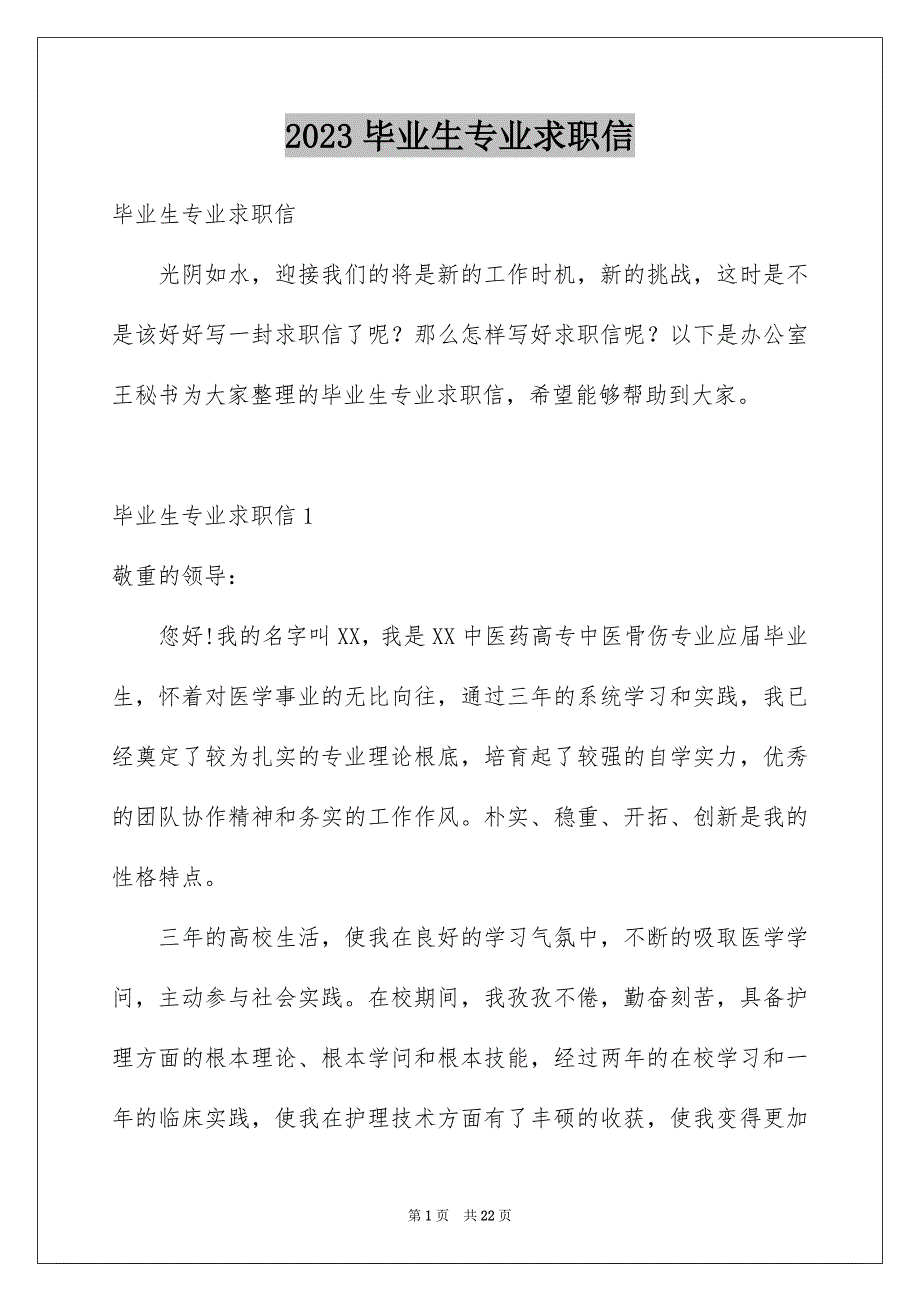 2023毕业生专业求职信
毕业生专业求职信
光阴如水，迎接我们的将是新的工作时机，新的挑战，这时是不
是该好好写一封求职信了呢？那么怎样写好求职信呢？以下是办公室
王秘书为大家整理的毕业生专业求职信，希望能够帮助到大家。
毕业生专业求职信1
敬重的领导：
您好!我的名字叫XX，我是XX中医药高专中医骨伤专业应届毕业
生，怀着对医学事业的无比向往，通过三年的系统学习和实践，我已
经奠定了较为扎实的专业理论根底，培育起了较强的自学实力，优秀
的团队协作精神和务实的工作作风。朴实、稳重、开拓、创新是我的
性格特点。
三年的高校生活，使我在良好的学习气氛中，不断的吸取医学学
问，主动参与社会实践。在校期间，我孜孜不倦，勤奋刻苦，具备护
理方面的根本理论、根本学问和根本技能，经过两年的在校学习和一
年的临床实践，使我在护理技术方面有了丰硕的收获，使我变得更加
第1页 共22页